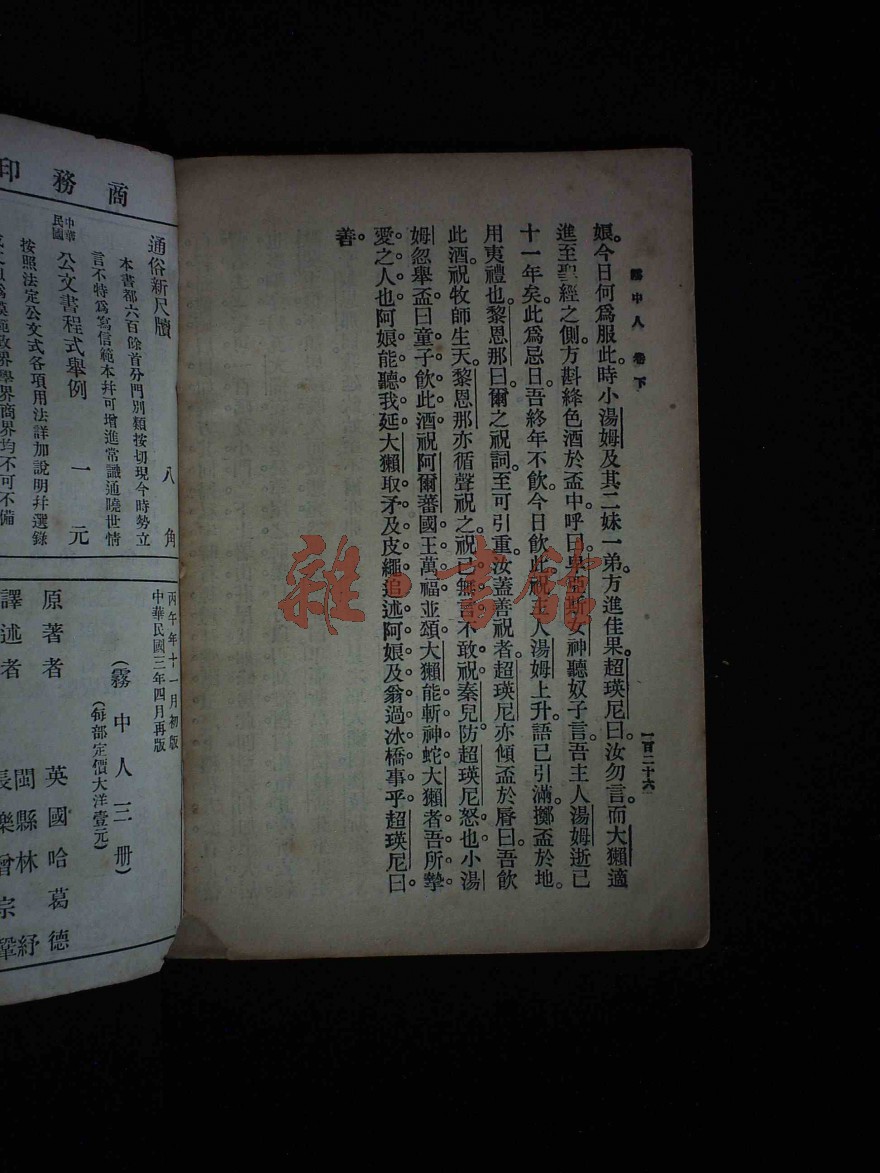 霧中人 卷下
一百二十六
娘。今日何爲服此。時小湯姆及其二妹一弟。方進佳果。超瑛尼曰。汝勿言。而大獺適
進至聖經之側。方斟絳色酒於盃中。呼曰。女神聽奴子言。吾主人湯姆逝已
十一年矣。此爲忌日。吾終年不飮。今日飮此。祝主人湯姆上升。語已引滿。擲盃於地。
用夷禮也。黎恩那曰。爾之祝詞。至可引重。汝蓋善祝者。超瑛尼亦傾盃於脣曰。吾飮
此酒。祝牧師生天。黎恩那亦循聲祝之。祝已無言。不敢祝秦兒。防超瑛尼怒也。小湯
姆忽舉盃曰。童子飮此酒。祝阿爾蕃國王萬福。並頌大獺能斬神蛇。大獺者。吾所摯
愛之人也。阿娘能聽我延大獺取矛及皮繩。追述阿娘及翁過冰橋事乎。超瑛尼曰。
善。
商務印
通俗新尺牘 八角
本書都六百餘首分門別類按切現今時勢立
言不特爲寫信範本幷可增進常識通曉世情
中華民國 公文書程式舉例 一元
按照法定公文式各項用法詳加說明幷選錄
政界學界商界均不可不備
丙午年十一月初版
中華民國三年四月再版
(霧中人三册)
(每部定價大洋壹元)
原著者 英國哈葛德
譯述者 閩縣林紓
長樂曾宗鞏
雜·書館